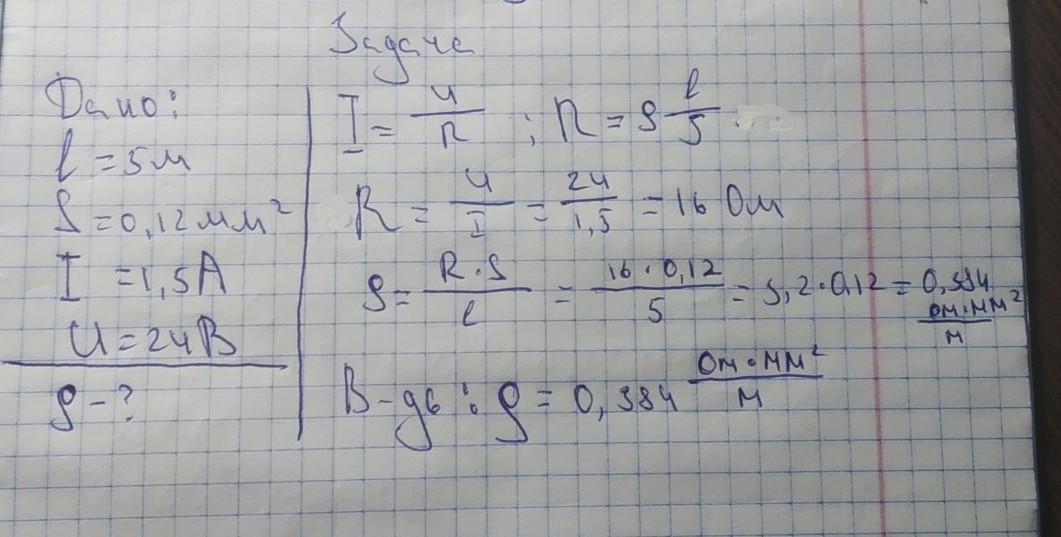 Задача
Дано:
l = 5м
S = 0,12 мм²
I = 1,5А
U = 24В
ρ - ?
I = U/R ; R = ρ l/S
R = U/I = 24/1,5 = 16 Ом
ρ = R·S/l = 16·0,12/5 = 3,2·0,12 = 0,384 Ом·мм²/м
В-дь: ρ = 0,384 Ом·мм²/м